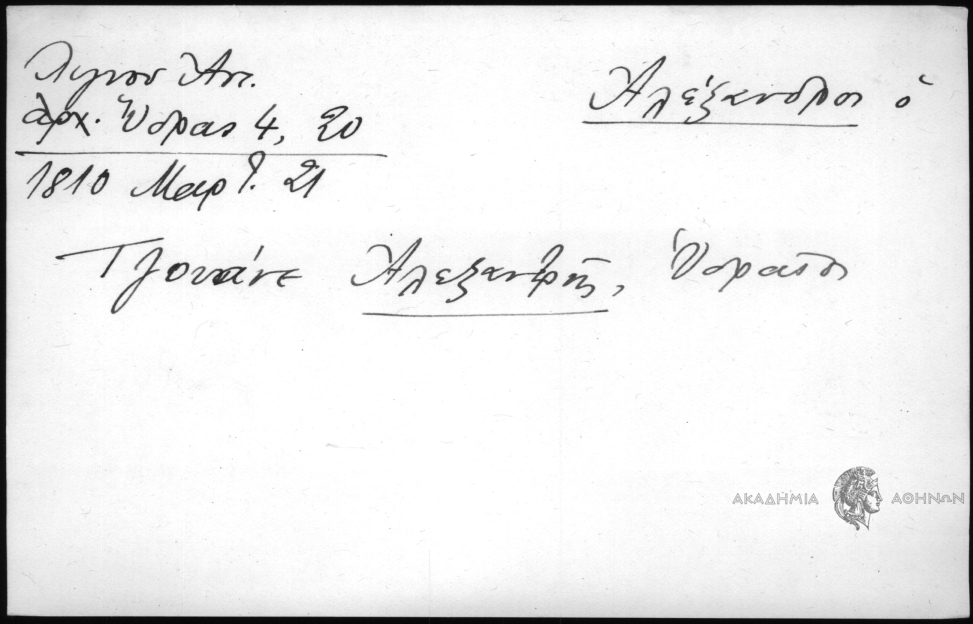 Λιγνου Ἀντ.
ἀρχ. Ὕδρας 4, 20
1810 Μαρτ. 21
Ἀλέξανδρος ὁ
Τζουάνε Ἀλεξανδρῆς, Ὑδραῖος
ΑΚΑΔΗΜΙΑ ΑΘΗΝΩΝ